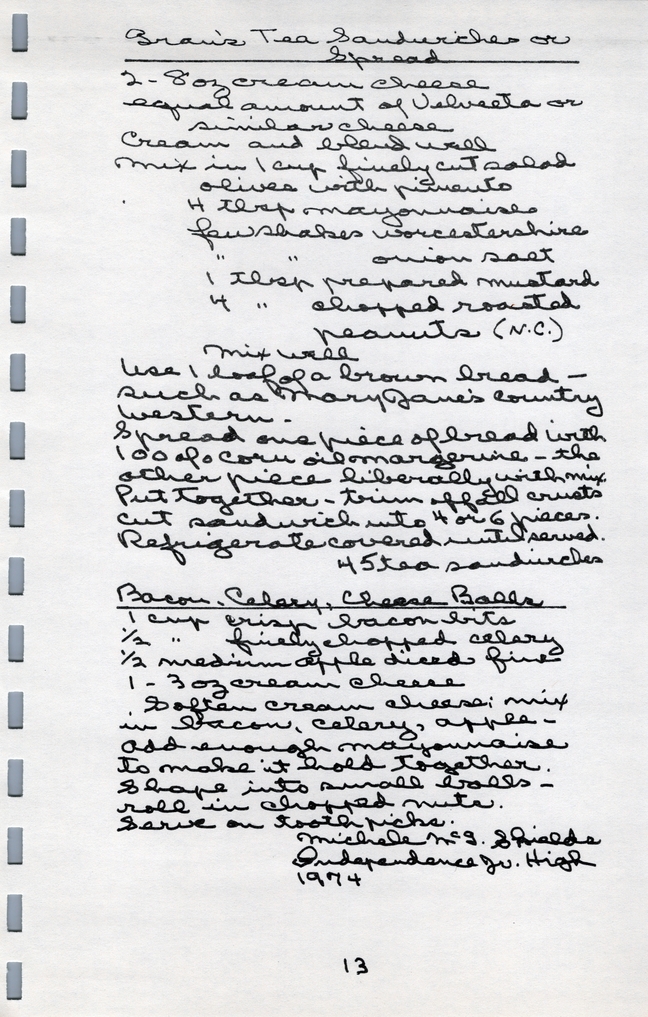 Bran's Tea Sandwiches or
Spread
2 - 8 oz cream cheese
equal amount of Velveeta or
similar cheese
Cream and blend well
Mix in 1 cup finely cut salad
olives with pimento
4 tbsp mayonnaise
few shakes worcestershire
" " onion salt
1 tbsp prepared mustard
4 " chopped roasted
peanuts (N.C.)
Mix well
Use 1 loaf of a brown bread -
such as Mary Jane's country
western.
Spread one piece of bread with
100% corn oil margerine - the
other piece liberally with mix.
Put together - trim off all crusts
cut sandwich into 4 or 6 pieces.
Refrigerate covered until served.
45 tea sandwiches
Bacon, Celery, Cheese Balls
1 cup crisp bacon bits
1/2 " finely chopped celery
1/2 medium apple diced fine
1 - 3 oz cream cheese
Soften cream cheese; mix
in bacon, celery, apple -
add enough mayonnaise
to make it hold together.
Shape into small balls -
roll in chopped nuts.
Serve on toothpicks.
Michele Shields
Independence Jr. High
1974
13